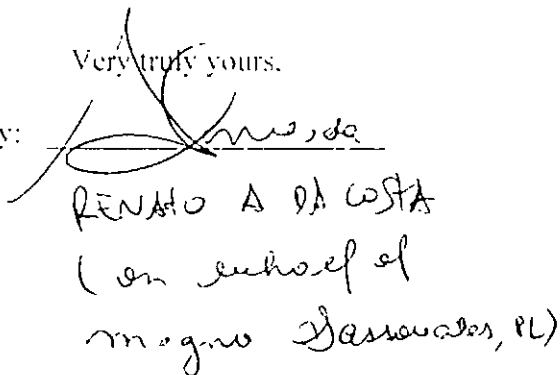 Very truly yours,
y:
RENATO A DA COSTA
(on behalf of
Magno Vasconcelos, PL)